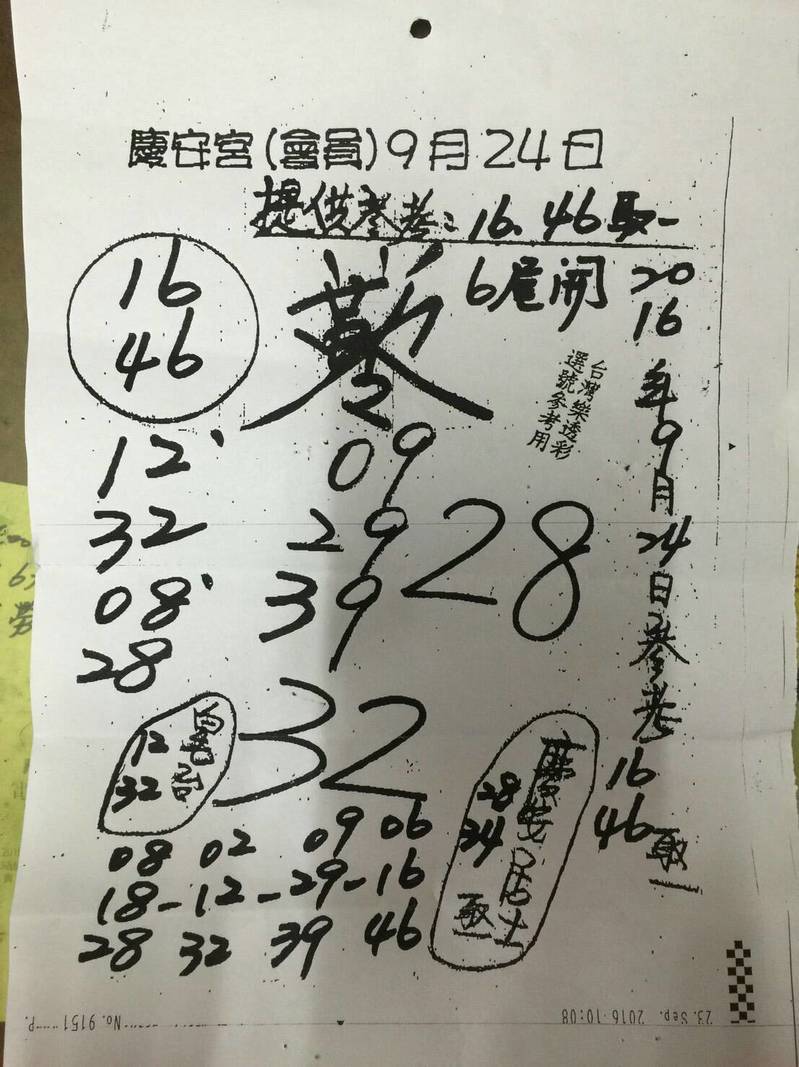 慶安宮(會員)9月24日
提供參考:16.46取一
6尾開
16
46
2
12
32
08
28
09
29
39
28
32
台灣樂透彩
選號參考用
2016年9月24日參考16 46取一
12
32
慶安居士
28
34
取一
08 02 09 06
18-12-29-16
28 32 39 46
23. Sep. 2016 10:08
No. 9151 P.